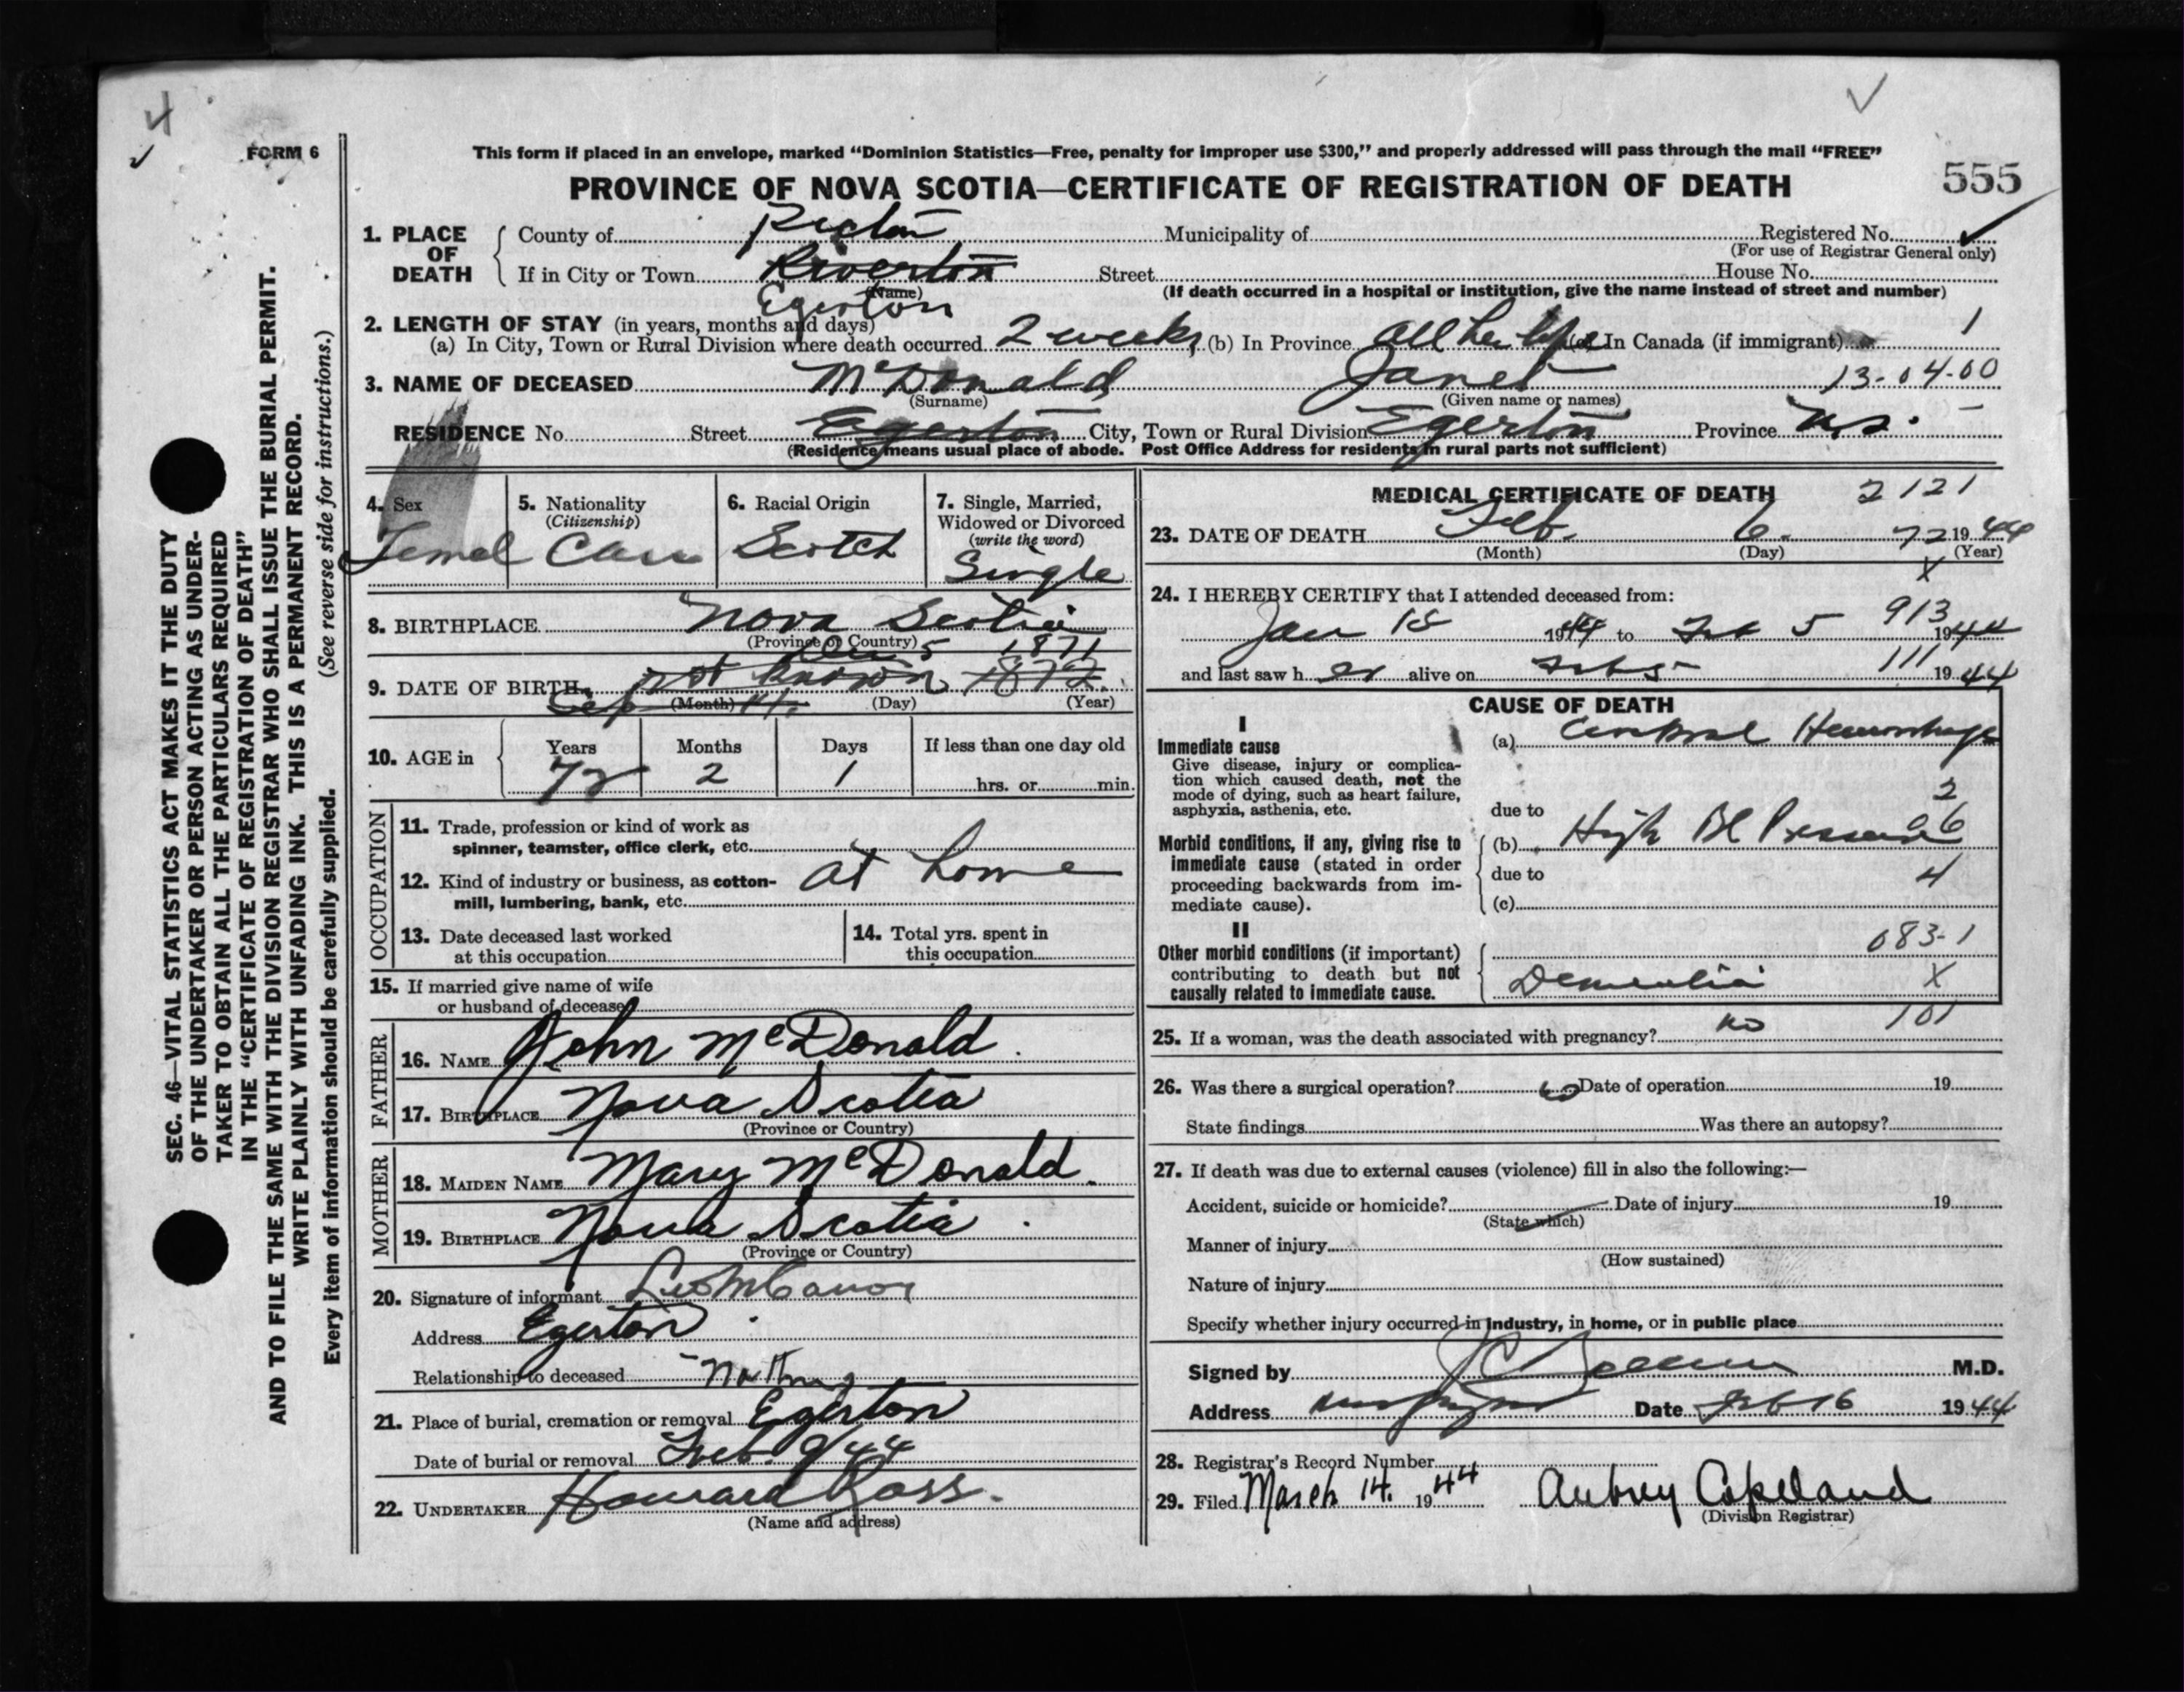 4
FORM 6
This form if placed in an envelope, marked “Dominion Statistics—Free, penalty for improper use $300,” and properly addressed will pass through the mail “FREE”
PROVINCE OF NOVA SCOTIA—CERTIFICATE OF REGISTRATION OF DEATH
555
1. PLACE OF DEATH
County of Pictou Municipality of Registered No.
(For use of Registrar General only)
If in City or Town Riverton Street House No.
(Name)
(If death occurred in a hospital or institution, give the name instead of street and number)
Egerton
2. LENGTH OF STAY (in years, months and days)
(a) In City, Town or Rural Division where death occurred 2 weeks (b) In Province all her life (c) In Canada (if immigrant) 1
3. NAME OF DECEASED McDonald Janet 13-04-00
(Surname) (Given name or names)
RESIDENCE No. Street Egerton City, Town or Rural Division Egerton Province N.S.
(Residence means usual place of abode. Post Office Address for residents in rural parts not sufficient)
4. Sex
Femal
5. Nationality
(Citizenship)
6. Racial Origin
Scotch
7. Single, Married, Widowed or Divorced
(write the word)
Single
8. BIRTHPLACE Nova Scotia
(Province or Country)
Dec 5 1871
9. DATE OF BIRTH not known 1872
Sep (Month) (Day) (Year)
10. AGE in
Years Months Days If less than one day old
72 2 1 hrs. or min.
OCCUPATION
11. Trade, profession or kind of work as
spinner, teamster, office clerk, etc.
12. Kind of industry or business, as cotton-
at home
mill, lumbering, bank, etc.
13. Date deceased last worked
at this occupation
14. Total yrs. spent in
this occupation
15. If married give name of wife
or husband of deceased
FATHER
16. NAME John McDonald
17. BIRTHPLACE Nova Scotia
(Province or Country)
MOTHER
18. MAIDEN NAME Mary McDonald.
19. BIRTHPLACE Nova Scotia
(Province or Country)
20. Signature of informant
Address Egerton
Relationship to deceased Nothing
21. Place of burial, cremation or removal Egerton
Date of burial or removal Feb. 9/44
22. UNDERTAKER Howard Ross.
(Name and address)
MEDICAL CERTIFICATE OF DEATH 2121
23. DATE OF DEATH Feb. 6. 72 1944
(Month) (Day) (Year)
X
24. I HEREBY CERTIFY that I attended deceased from:
913
Jan 18 1944 to Feb 5 1944
111
and last saw h er alive on Feb 5 1944
CAUSE OF DEATH
I
Immediate cause
Give disease, injury or complica-
tion which caused death, not the
mode of dying, such as heart failure,
asphyxia, asthenia, etc.
(a) Cerebral Hemorrhage
2
due to
Morbid conditions, if any, giving rise to
immediate cause (stated in order
proceeding backwards from im-
mediate cause).
(b) High Bl Pressure 06
due to 4
(c)
II
Other morbid conditions (if important)
contributing to death but not
causally related to immediate cause.
083-1
Dementia X
101
25. If a woman, was the death associated with pregnancy? no
26. Was there a surgical operation? no Date of operation 19
State findings Was there an autopsy?
27. If death was due to external causes (violence) fill in also the following:—
Accident, suicide or homicide? Date of injury 19
(State which)
Manner of injury
(How sustained)
Nature of injury
Specify whether injury occurred in industry, in home, or in public place
Signed by M.D.
Address Date Feb 16 1944
28. Registrar's Record Number
29. Filed March 14. 1944 Aubrey Copeland
(Division Registrar)
SEC. 46—VITAL STATISTICS ACT MAKES IT THE DUTY
OF THE UNDERTAKER OR PERSON ACTING AS UNDER-
TAKER TO OBTAIN ALL THE PARTICULARS REQUIRED
IN THE “CERTIFICATE OF REGISTRATION OF DEATH”
AND TO FILE THE SAME WITH THE DIVISION REGISTRAR WHO SHALL ISSUE THE BURIAL PERMIT.
WRITE PLAINLY WITH UNFADING INK. THIS IS A PERMANENT RECORD.
Every item of information should be carefully supplied. (See reverse side for instructions.)